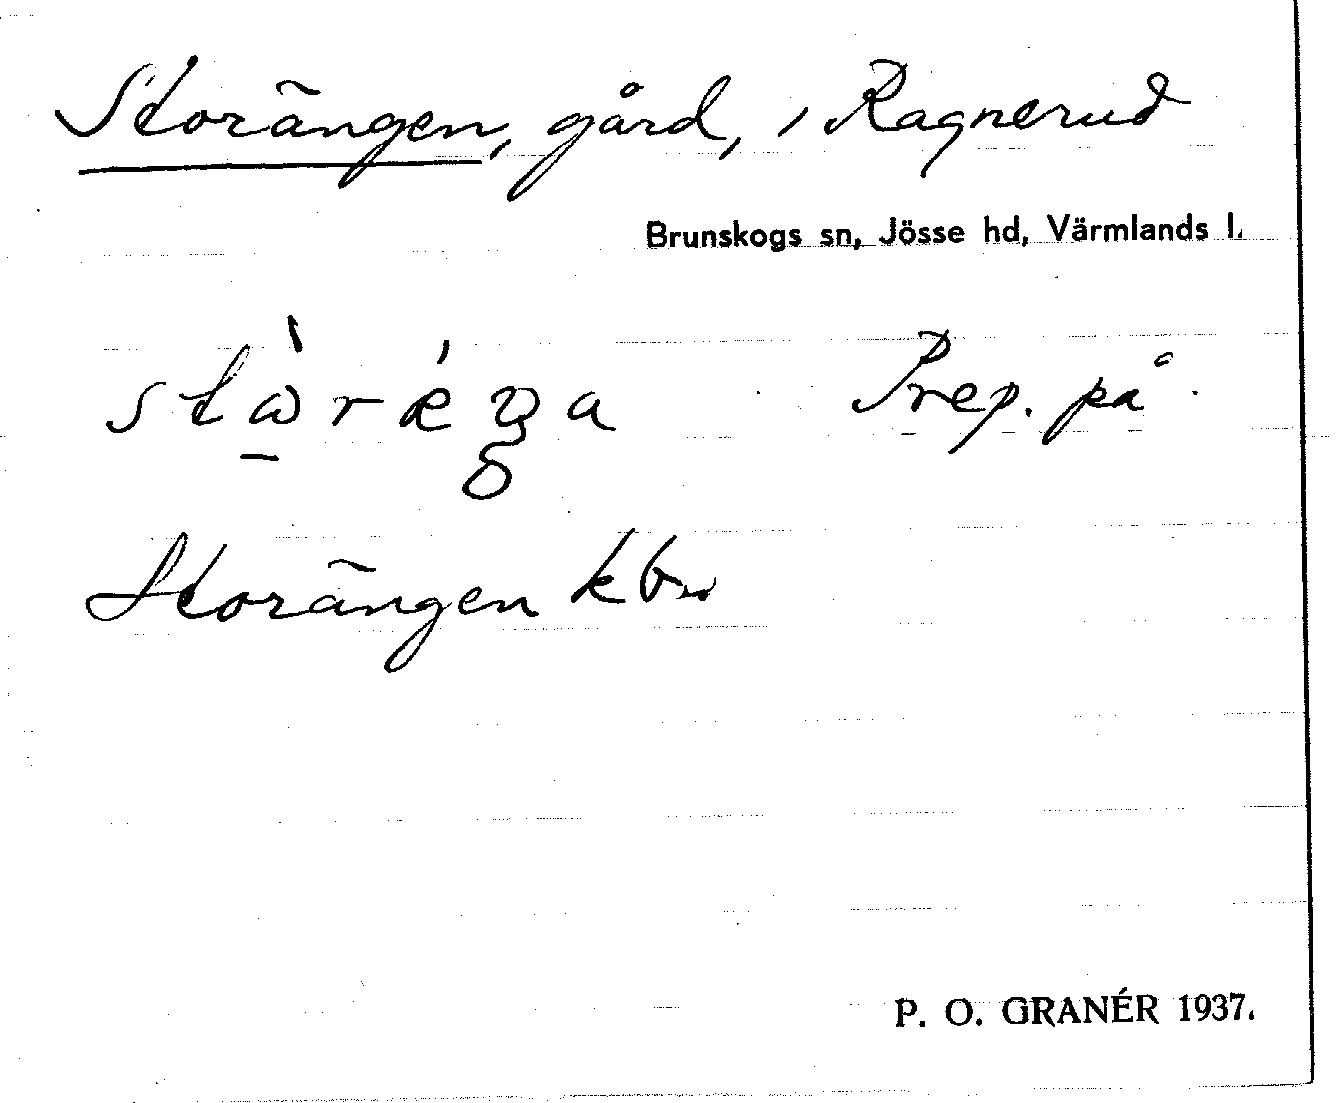 Storängen, gård, i Ragnerud
Brunskogs sn, Jösse hd, Värmlands l.
Prep. på.
Storängen kbr
P. O. GRANÉR 1937.